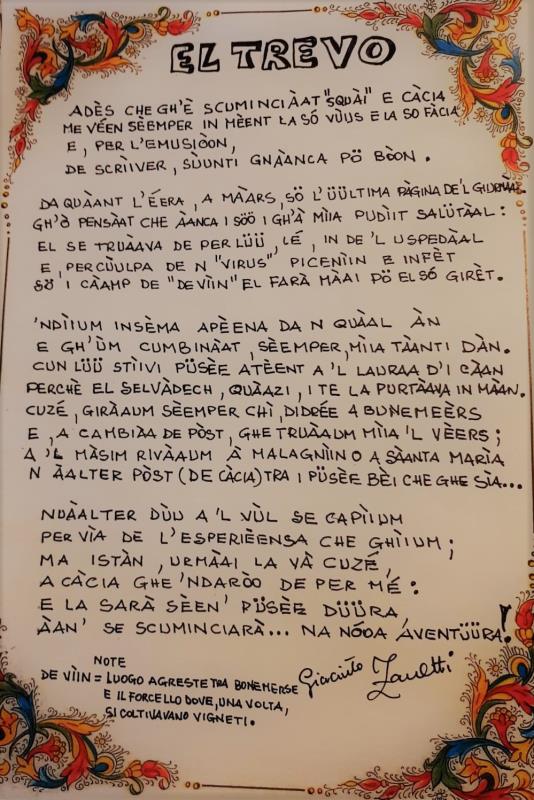 EL TREVO
ADÈS CHE GH'È SCUMINCIÀAT "SQUÀI" E CÀCIA
ME VÉEN SÈEMPER IN MÈENT LA SÓ VÙUS E LA SO FÀCIA
E, PER L'EMUSIÒON,
DE SCRÌIVER, SÙUNTI GNÀANCA PÖ BÒON.
DA QUÀANT L'ÉERA, A MÀARS, SÖ L'ÜÜLTIMA PÀGINA DE'L GIURNÀAL
GH'Ò PENSÀAT CHE ÀANCA I SÖÖ I GH'À MÌIA PUDÌIT SALÜTÀAL:
EL SE TRUÀAVA DE PER LÜÜ, LÉ, IN DE 'L USPEDÀAL
E, PER CÙULPA DE N "VIRUS" PICENÌIN E INFÈT
SÖ 'I CÀAMP DE "DEVÌIN" EL FARÀ MÀAI PÖ EL SÓ GIRÈT.
'NDÌIUM INSÈMA APÈENA DA N QUÀAL ÀN
E GH'ÙM CUMBINÀAT, SÈEMPER, MÌIA TÀANTI DÀN.
CUN LÜÜ STÌIVI PÜSÈE ATÈENT A 'L LAURAA D'I CÀAN
PERCHÈ EL SELVÀDECH, QUÀAZI, I TE LA PURTÀAVA IN MÀAN.
CUZÉ, GIRÀAUM SÈEMPER CHÌ, DIDRÉE A BUNEMÈERS
E, A CAMBIÀA DE PÒST, GHE TRUÀAUM MÌIA 'L VÈERS;
A 'L MÀSIM RIVÀAUM À MALAGNÌIN O A SÀANTA MARÌA
N ÀALTER PÒST (DE CÀCIA) TRA I PÜSÈE BÈI CHE GHE SÌA...
NUÀALTER DÙU A 'L VÙL SE CAPÌIUM
PER VÌA DE L'ESPERIÈENSA CHE GHÌIUM;
MA ISTÀN, URMÀAI LA VÀ CUZÉ,
A CÀCIA GHE 'NDARÒO DE PER MÉ:
E LA SARÀ SÈEN' PÜSÈE DÜÜRA
ÀAN' SE SCUMINCIARÀ... NA NÓOA AVENTÜÜRA!
NOTE
DE VÌIN = LUOGO AGRESTE TRA BONEMERSE
E IL FORCELLO DOVE, UNA VOLTA,
SI COLTIVAVANO VIGNETI.
Giacinto Zanetti